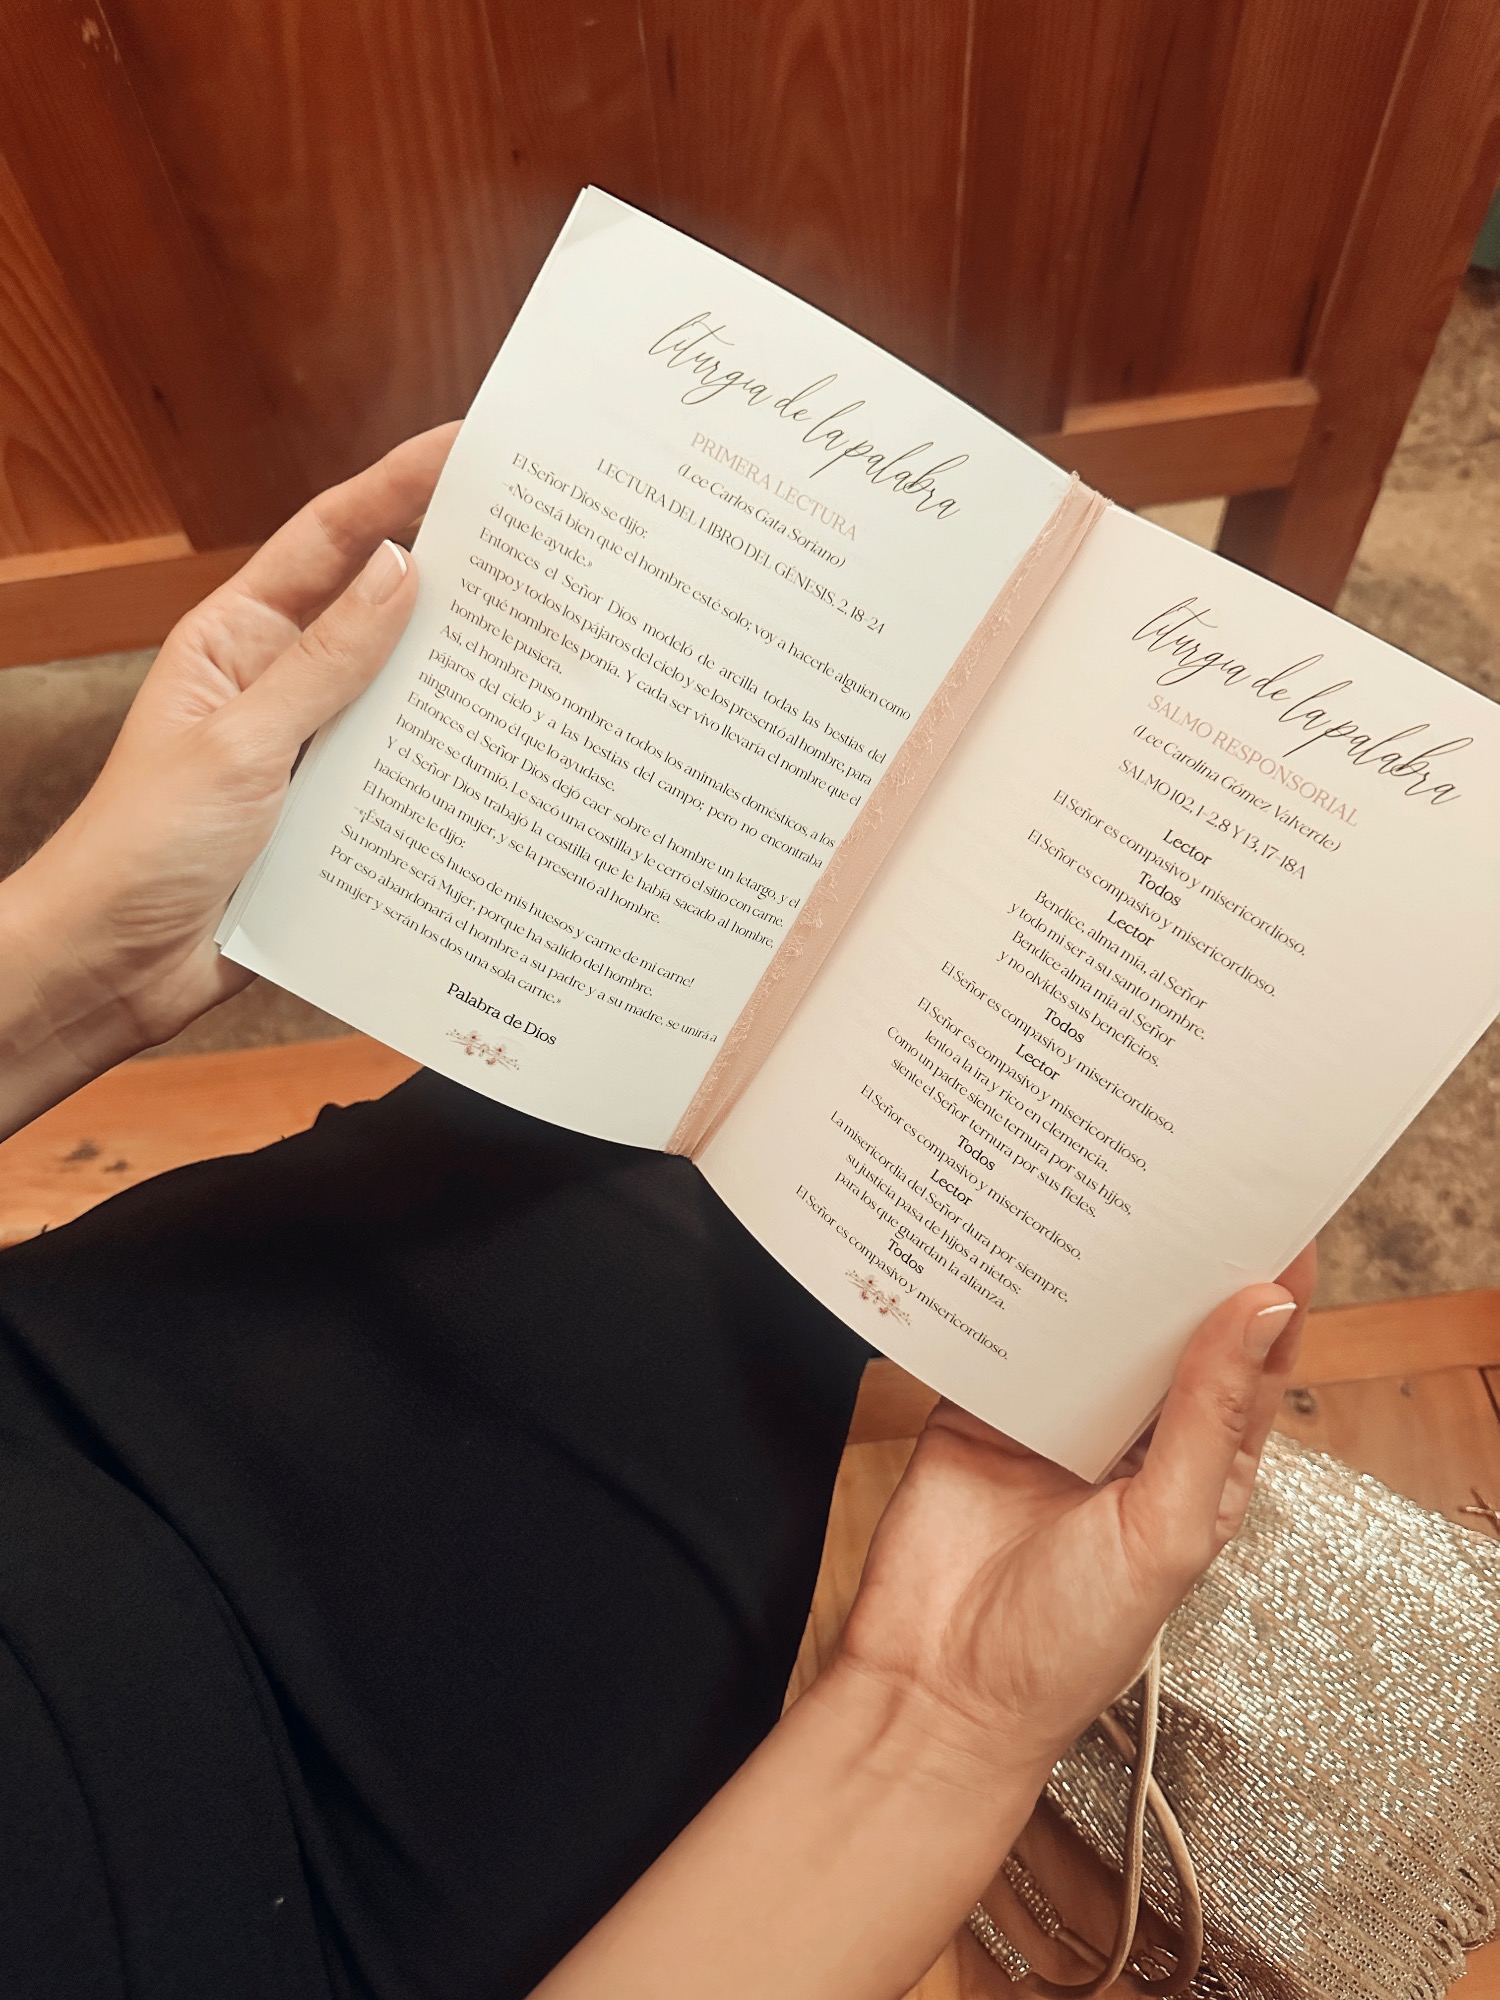 liturgia de la palabra
PRIMERA LECTURA
(Lee Carlos Gata Soriano)
LECTURA DEL LIBRO DEL GÉNESIS, 2, 18-24
El Señor Dios se dijo:
-«No está bien que el hombre esté solo; voy a hacerle alguien como
él que le ayude.»
Entonces el Señor Dios modeló de arcilla todas las bestias del
campo y todos los pájaros del cielo y se los presentó al hombre, para
ver qué nombre les ponía. Y cada ser vivo llevaría el nombre que el
hombre le pusiera.
Así, el hombre puso nombre a todos los animales domésticos, a los
pájaros del cielo y a las bestias del campo; pero no encontraba
ninguno como él que lo ayudase.
Entonces el Señor Dios dejó caer sobre el hombre un letargo, y el
hombre se durmió. Le sacó una costilla y le cerró el sitio con carne.
Y el Señor Dios trabajó la costilla que le había sacado al hombre,
haciendo una mujer, y se la presentó al hombre.
El hombre le dijo:
-«¡Ésta sí que es hueso de mis huesos y carne de mi carne!
Su nombre será Mujer, porque ha salido del hombre.
Por eso abandonará el hombre a su padre y a su madre, se unirá a
su mujer y serán los dos una sola carne.»
Palabra de Dios
liturgia de la palabra
SALMO RESPONSORIAL
(Lee Carolina Gómez Valverde)
SALMO 102, 1-2,8 Y 13, 17-18A
Lector
El Señor es compasivo y misericordioso.
Todos
El Señor es compasivo y misericordioso.
Lector
Bendice, alma mía, al Señor
y todo mi ser a su santo nombre.
Bendice alma mía al Señor
y no olvides sus beneficios.
Todos
El Señor es compasivo y misericordioso.
Lector
El Señor es compasivo y misericordioso,
lento a la ira y rico en clemencia.
Como un padre siente ternura por sus hijos,
siente el Señor ternura por sus fieles.
Todos
El Señor es compasivo y misericordioso.
Lector
La misericordia del Señor dura por siempre,
su justicia pasa de hijos a nietos:
para los que guardan la alianza.
Todos
El Señor es compasivo y misericordioso.